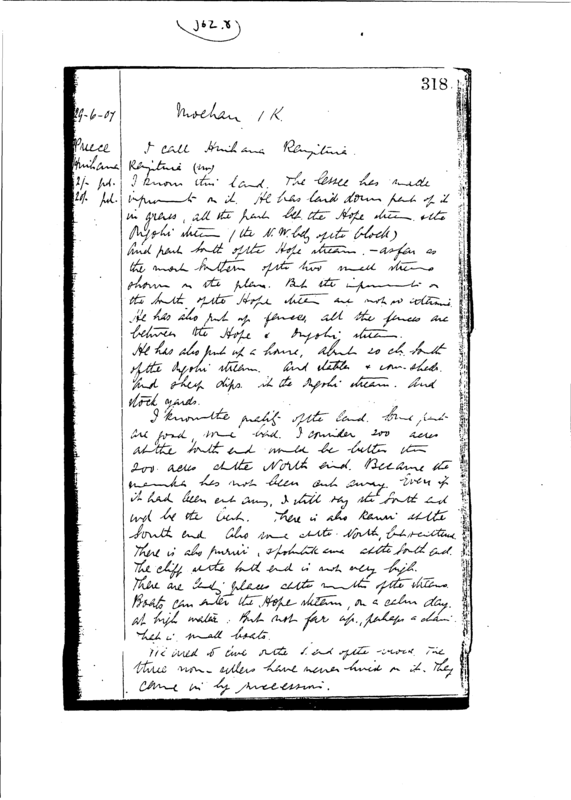 J62.8
318
29-6-07
Mochau 1 K.
Preece
I call Hurihana Rangituia
Hurihana
Rangituia (sw)
2/- pd.
20/- pd.
I know this land. The lessee has made
improvements on it. He has laid down part of it
in grass, all the part bet the Hope stream & the
stream (the N.W. bdy of the block)
And part South of the Hope stream. - as far as
the most Southern of the two small streams
shown on the plan. But the improvements on
the South of the Hope stream are not so extensive
He has also put up fences, all the fences are
between the Hope & stream
He has also put up a house, about 20 ch. South
of the stream. And stables & cow-sheds.
And sheep dips. in the stream. And
stock yards.
I know the quality of the land. Some parts
are good, some bad. I consider 200 acres
at the South end would be better than
200 acres at the North end. Because the
manuka has not been cut away. Even if
it had been cut away, I still say the South end
wd be the best. There is also Kauri at the
South end. Also some at the North, but scattered
There is also puriri, & at the South end.
The cliff at the South end is not very high.
There are places at the mouths of the streams
Boats can enter the Hope stream, on a calm day.
at high water. But not far up, perhaps a chain.
That is small boats.
We used to live on the S. end of the block. The
three non-sellers have never lived on it. They
came in by succession.